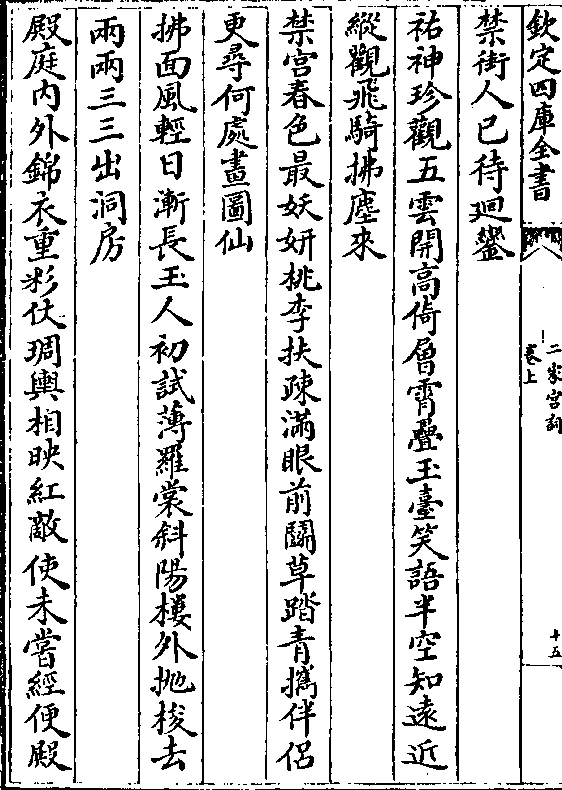 欽定四庫全書
二家宮詞
卷上
十五
禁街人已待廻鑾
祐神珍觀五雲開高倚層霄疊玉臺笑語半空知遠近
縱觀飛騎拂塵來
禁宮春色最妖妍桃李扶疎滿眼前鬭草踏青攜伴侶
更尋何處畫圖仙
拂面風輕日漸長玉人初試薄羅裳斜陽樓外抛梭去
兩兩三三出洞房
殿庭内外錦衣重彩仗琱輿相映紅敵使未嘗經便殿